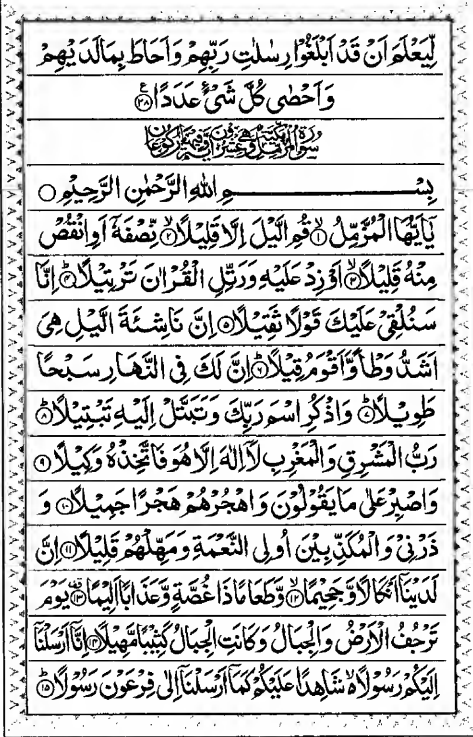 لِّيَعْلَمَ اَنْ قَدْ اَبْلَغُوْا رِسٰلٰتِ رَبِّهِمْ وَاَحَاطَ بِمَا لَدَيْهِمْ
وَاَحْصٰى كُلَّ شَىْءٍ عَدَدًا ﴿۲۸﴾ ع
سُوْرَةُ الْمُزَّمِّلِ مَكِّيَّةٌ وَّهِىَ عِشْرُوْنَ اٰيَةً وَّفِيْهَا رُكُوْعَانِ
بِسْمِ اللهِ الرَّحْمٰنِ الرَّحِيْمِ
يٰۤاَيُّهَا الْمُزَّمِّلُ ﴿۱﴾ قُمِ الَّيْلَ اِلَّا قَلِيْلًا ﴿۲﴾ نِّصْفَهٗۤ اَوِ انْقُصْ
مِنْهُ قَلِيْلًا ﴿۳﴾ اَوْ زِدْ عَلَيْهِ وَرَتِّلِ الْقُرْاٰنَ تَرْتِيْلًا ﴿۴﴾ اِنَّا
سَنُلْقِىْ عَلَيْكَ قَوْلًا ثَقِيْلًا ﴿۵﴾ اِنَّ نَاشِئَةَ الَّيْلِ هِىَ
اَشَدُّ وَطْاً وَّاَقْوَمُ قِيْلًا ﴿۶﴾ اِنَّ لَكَ فِى النَّهَارِ سَبْحًا
طَوِيْلًا ﴿۷﴾ وَاذْكُرِ اسْمَ رَبِّكَ وَتَبَتَّلْ اِلَيْهِ تَبْتِيْلًا ﴿۸﴾
رَبُّ الْمَشْرِقِ وَالْمَغْرِبِ لَاۤ اِلٰهَ اِلَّا هُوَ فَاتَّخِذْهُ وَكِيْلًا ﴿۹﴾
وَاصْبِرْ عَلٰى مَا يَقُوْلُوْنَ وَاهْجُرْهُمْ هَجْرًا جَمِيْلًا ﴿۱۰﴾ وَ
ذَرْنِىْ وَالْمُكَذِّبِيْنَ اُولِى النَّعْمَةِ وَمَهِّلْهُمْ قَلِيْلًا ﴿۱۱﴾ اِنَّ
لَدَيْنَاۤ اَنْكَالًا وَّجَحِيْمًا ﴿۱۲﴾ وَّطَعَامًا ذَا غُصَّةٍ وَّعَذَابًا اَلِيْمًا ﴿۱۳﴾ يَوْمَ
تَرْجُفُ الْاَرْضُ وَالْجِبَالُ وَكَانَتِ الْجِبَالُ كَثِيْبًا مَّهِيْلًا ﴿۱۴﴾ اِنَّاۤ اَرْسَلْنَاۤ
اِلَيْكُمْ رَسُوْلًا شَاهِدًا عَلَيْكُمْ كَمَاۤ اَرْسَلْنَاۤ اِلٰى فِرْعَوْنَ رَسُوْلًا ﴿۱۵﴾